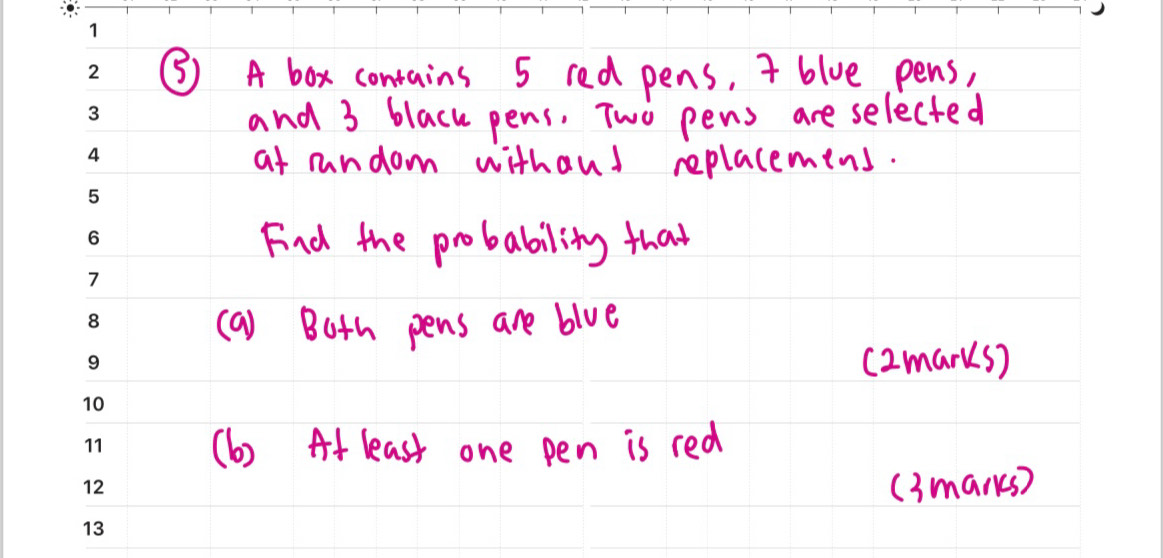 1
2 (5) A box contains 5 red pens, 7 blue pens,
3 and 3 black pens. Two pens are selected
4 at random without replacement.
5
6 Find the probability that
7
8 (a) Both pens are blue
9 (2 marks)
10
11 (b) At least one pen is red
12 (3 marks)
13